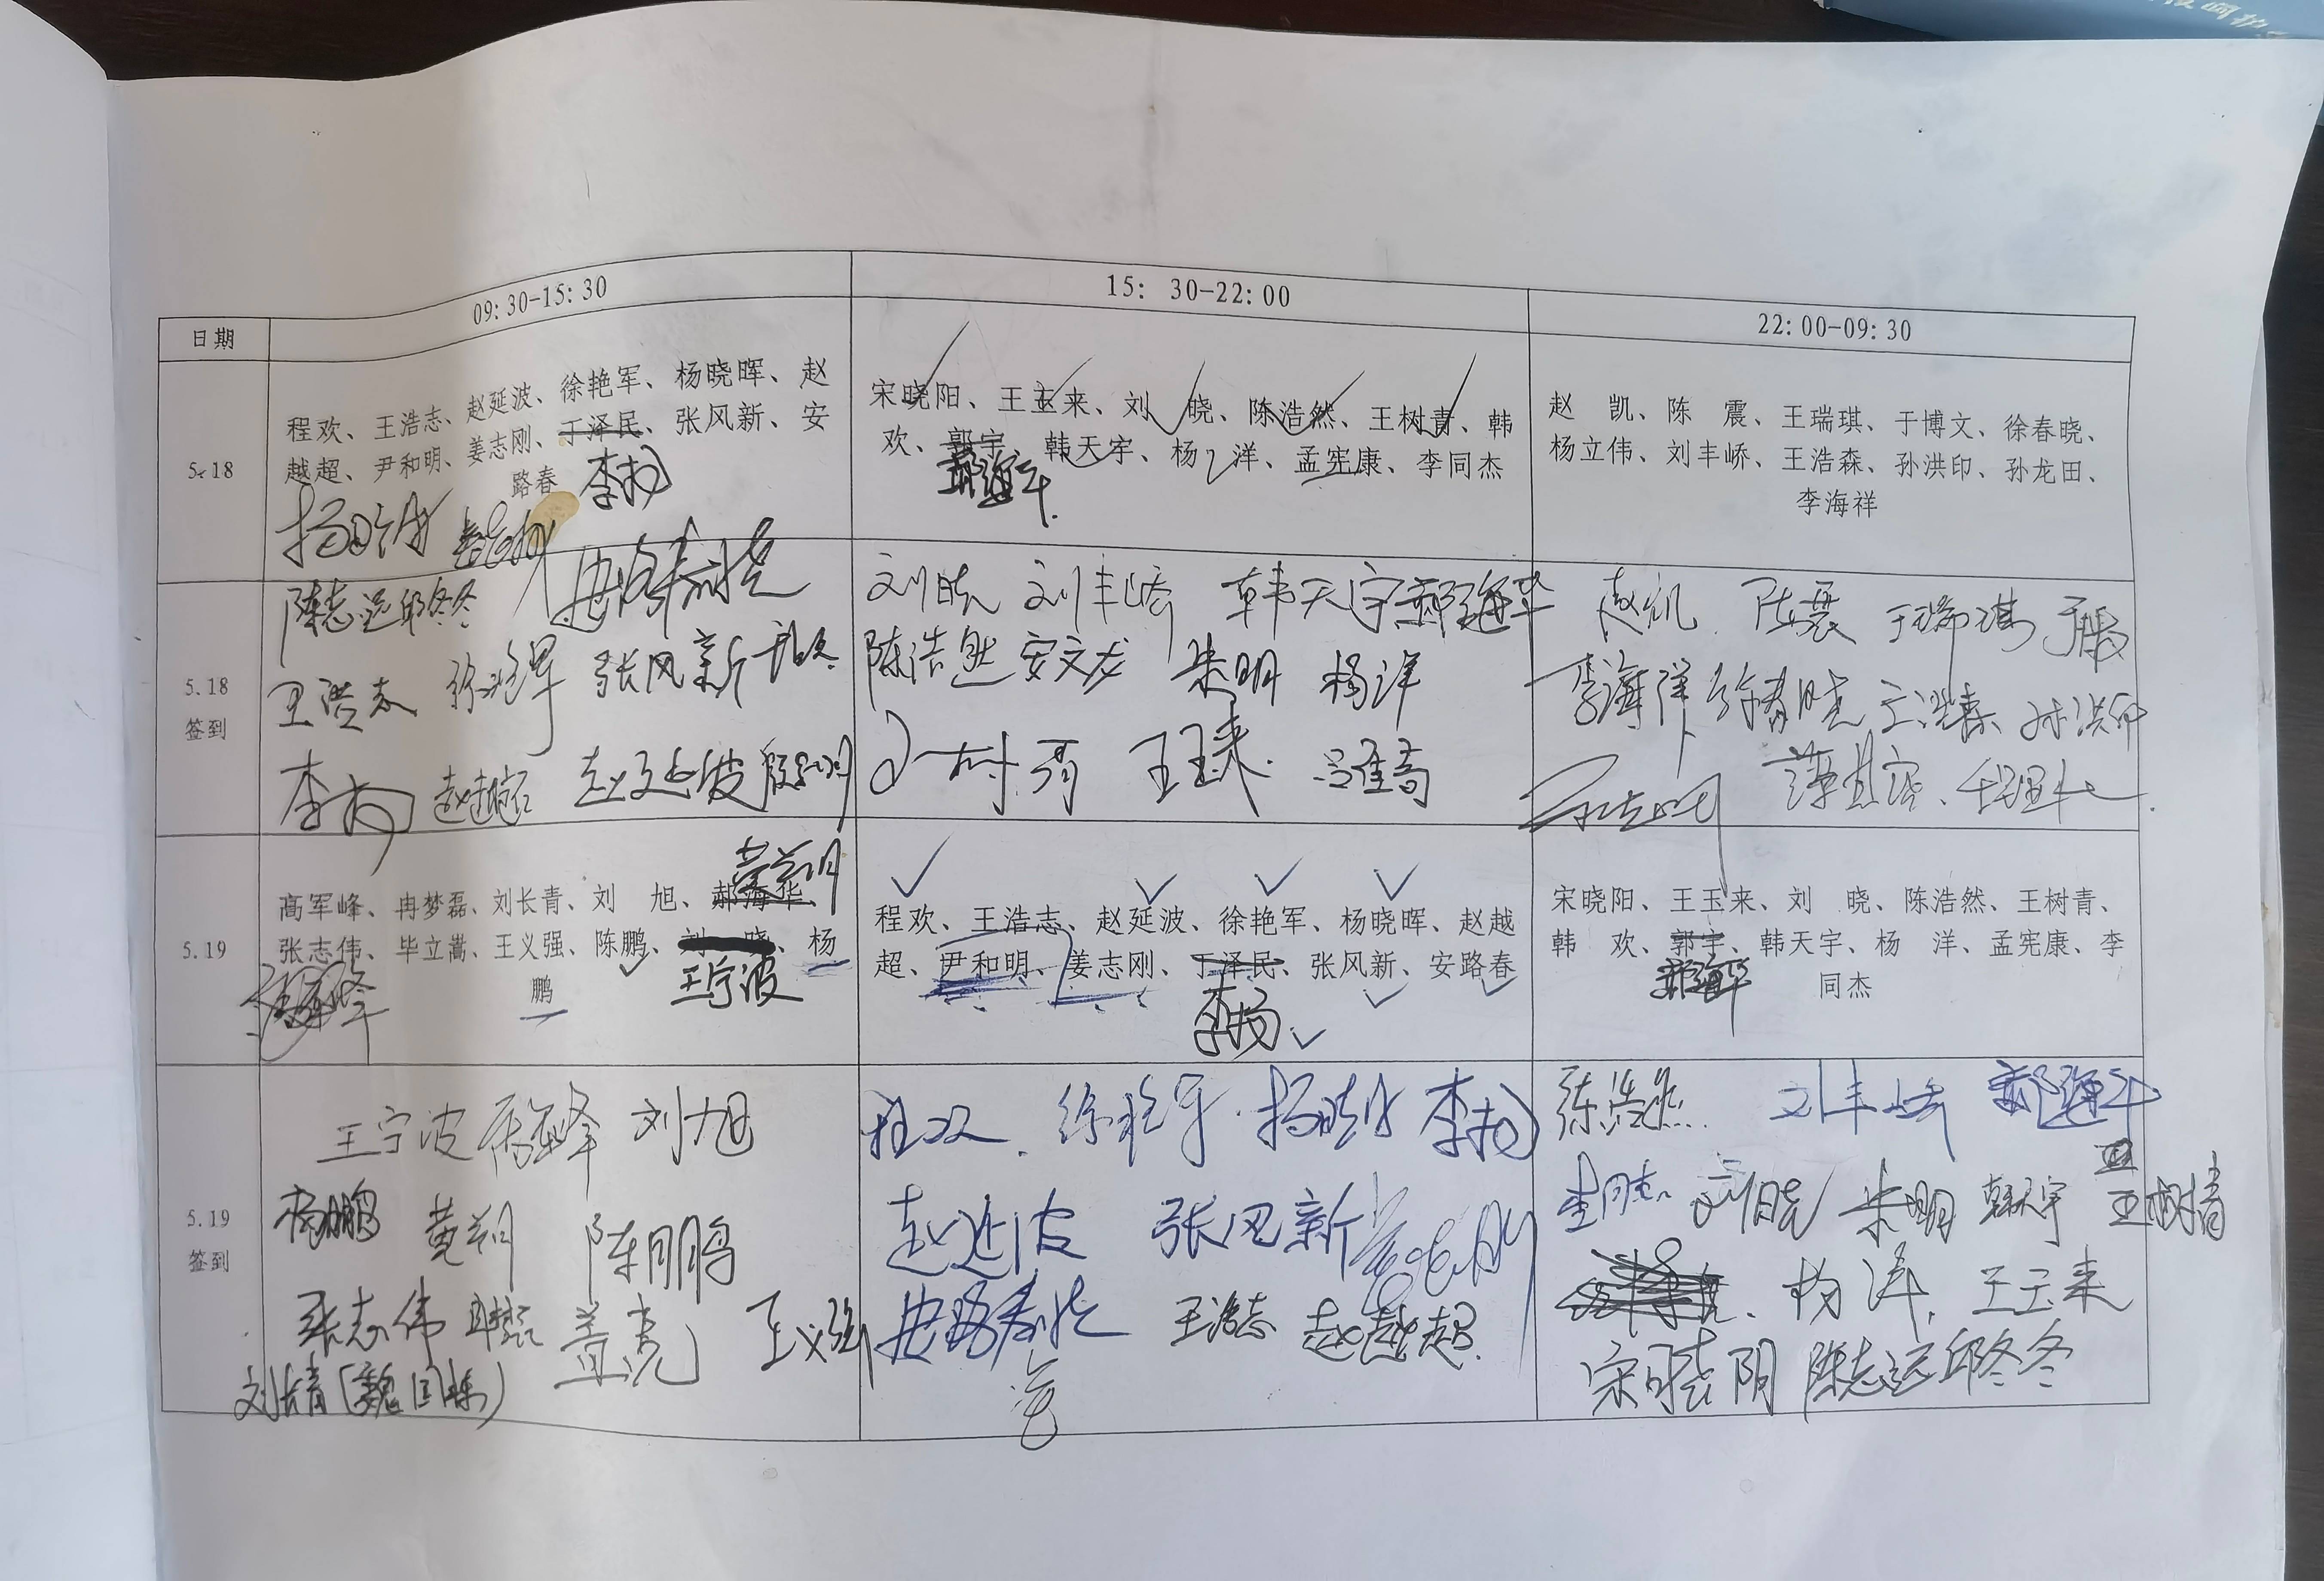 日期
09:30-15:30
15: 30-22:00
22:00-09:30
5.18
程欢、王浩志、赵延波、徐艳军、杨晓晖、赵
越超、尹和明、姜志刚、丁泽民、张风新、安
路春
李扬
宋晓阳、王玉来、刘 晓、陈浩然、王树青、韩
欢、郭宇 韩天宇、杨 洋、孟宪康、李同杰
郝海华
赵 凯、陈 震、王瑞琪、于博文、徐春晓、
杨立伟、刘丰峤、王浩森、孙洪印、孙龙田、
李海祥
5.18
签到
陈志远 邱冬冬
王浩志 徐艳军 张风新
李扬 赵越超 赵延波
刘晓 刘丰峤 韩天宇 郝海华
陈浩然 安文龙 朱明 杨洋
王树青 王玉来
赵凯 陈震 王瑞琪
李海祥 徐春晓 王浩森 孙洪印
5.19
高军峰、冉梦磊、刘长青、刘 旭、郝海华、
黄翔
张志伟、毕立嵩、王义强、陈鹏、刘 晓、杨
鹏
王宁波
程欢、王浩志、赵延波、徐艳军、杨晓晖、赵越
超、尹和明、姜志刚、丁泽民、张风新、安路春
李扬
宋晓阳、王玉来、刘 晓、陈浩然、王树青、
韩 欢、郭宇、韩天宇、杨 洋、孟宪康、李
同杰
郝海华
5.19
签到
王宁波 高军峰 刘旭
杨鹏 黄翔 陈鹏
张志伟 冉梦磊 盖亮 王义强
刘长青(魏国栋)
程欢 徐艳军 杨晓晖 李扬
赵延波 张风新
安路春 王浩志 赵越超
陈浩然 刘丰峤 郝海华
李同杰 刘晓 朱明 韩天宇 王树青
杨洋 王玉来
宋晓阳 陈志远 邱冬冬